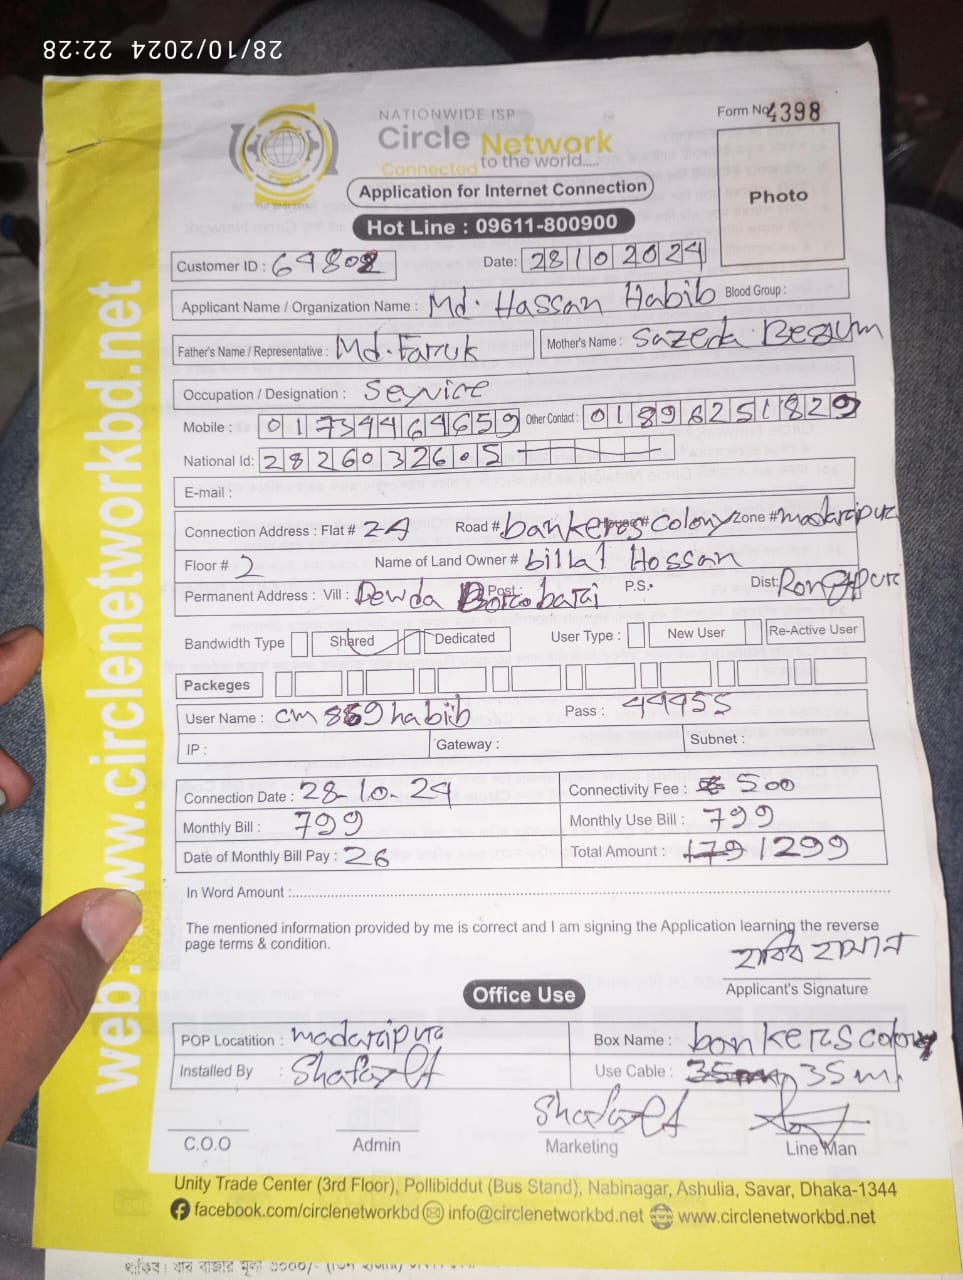 28/10/2024 22:28
Form No 4398
NATIONWIDE ISP
Circle Network
Connected to the world.....
Photo
Application for Internet Connection
Hot Line : 09611-800900
Customer ID : 69802 Date: 28102024
Applicant Name / Organization Name : Md. Hassan Habib Blood Group :
Father's Name / Representative : Md. Farruk Mother's Name : Sazeda Begum
Occupation / Designation : Service
Mobile : 01734464659 Other Contact : 01896251829
National Id: 2826032605
E-mail :
Connection Address : Flat # 24 Road # bankers House# colony Zone # madaripur
Floor # 2 Name of Land Owner # billal Hossan
Permanent Address : Vill : Dewda Post : bari P.S. Dist: Rongpur
Bandwidth Type Shared Dedicated User Type : New User Re-Active User
Packeges
User Name : cm869habib Pass : 49955
IP : Gateway : Subnet :
Connection Date : 28-10-24 Connectivity Fee : 500
Monthly Bill : 799 Monthly Use Bill : 799
Date of Monthly Bill Pay : 26 Total Amount : 1299
In Word Amount :
The mentioned information provided by me is correct and I am signing the Application learning the reverse
page terms & condition.
হাবিব হাসান
Applicant's Signature
Office Use
POP Locatition : madaripur Box Name : bonkers colony
Installed By : Use Cable : 35m
C.O.O Admin Marketing Line Man
Unity Trade Center (3rd Floor), Pollibiddut (Bus Stand), Nabinagar, Ashulia, Savar, Dhaka-1344
facebook.com/circlenetworkbd info@circlenetworkbd.net www.circlenetworkbd.net
web: www.circlenetworkbd.net